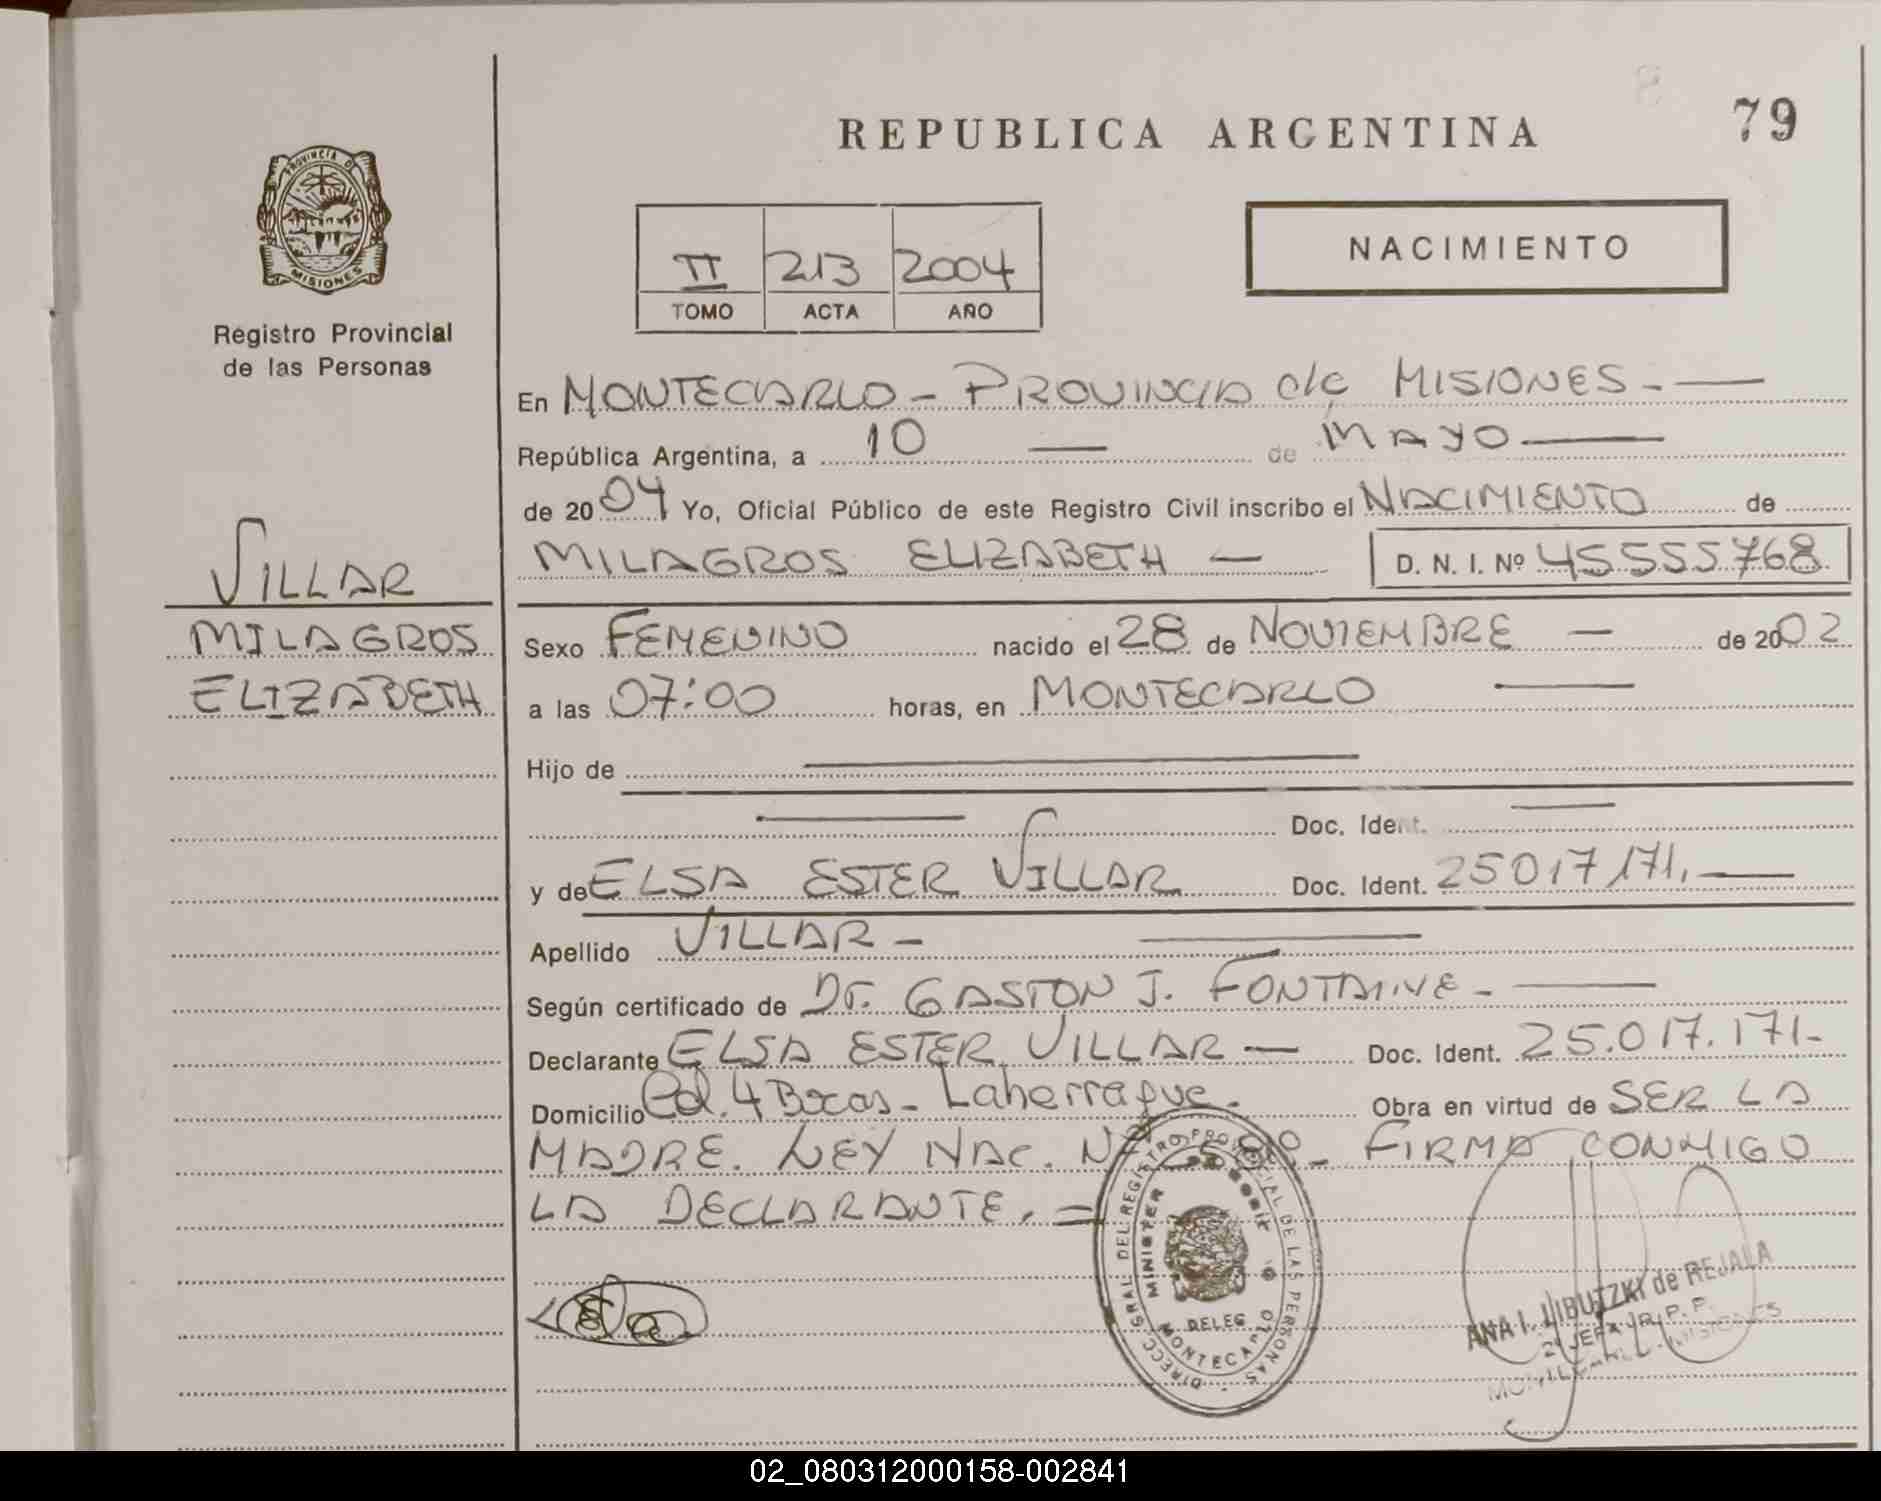 REPUBLICA ARGENTINA
79
PROVINCIA DE
MISIONES
Registro Provincial
de las Personas
II 213 2004
TOMO ACTA AÑO
NACIMIENTO
En MONTECARLO - PROVINCIA de MISIONES -
República Argentina, a 10 de MAYO
de 2004 Yo, Oficial Público de este Registro Civil inscribo el NACIMIENTO de
MILAGROS ELIZABETH - D. N. I. Nº 45555768
VILLAR
MILAGROS
ELIZABETH
Sexo FEMENINO nacido el 28 de NOVIEMBRE - de 2002
a las 07:00 horas, en MONTECARLO
Hijo de
Doc. Ident.
y de ELSA ESTER VILLAR Doc. Ident. 25017171.
Apellido VILLAR -
Según certificado de Dr. GASTON J. FONTAINE -
Declarante ELSA ESTER VILLAR - Doc. Ident. 25.017.171-
Domicilio Col. 4 Bocas - Laharrague - Obra en virtud de SER LA
MADRE. LEY NAC. FIRMA CONMIGO
LA DECLARANTE. =
DIRECC. GRAL. DEL REGISTRO PROVINCIAL DE LAS PERSONAS
MINISTER
DELEG
MONTECARLO
ANA I. LIBUTZKI de REJALA
2º JEFA R. P. P.
MONTECARLO - MISIONES
02_080312000158-002841